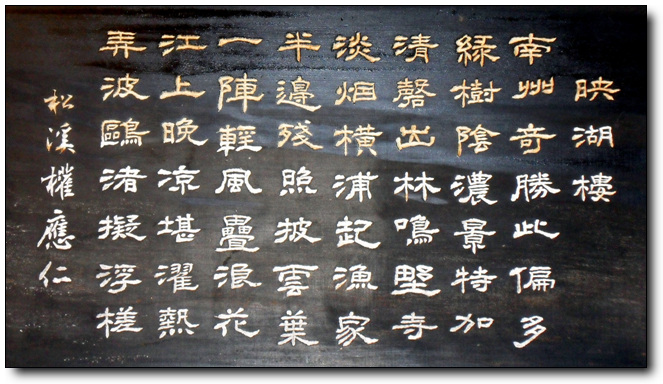 映湖樓
南州奇勝此偏多
綠樹陰濃景特加
清磬出林鳴野寺
淡烟橫浦起漁家
半邊殘照披雲葉
一陣輕風疊浪花
江上晚凉堪濯熱
弄波鷗渚擬浮槎
松溪權應仁